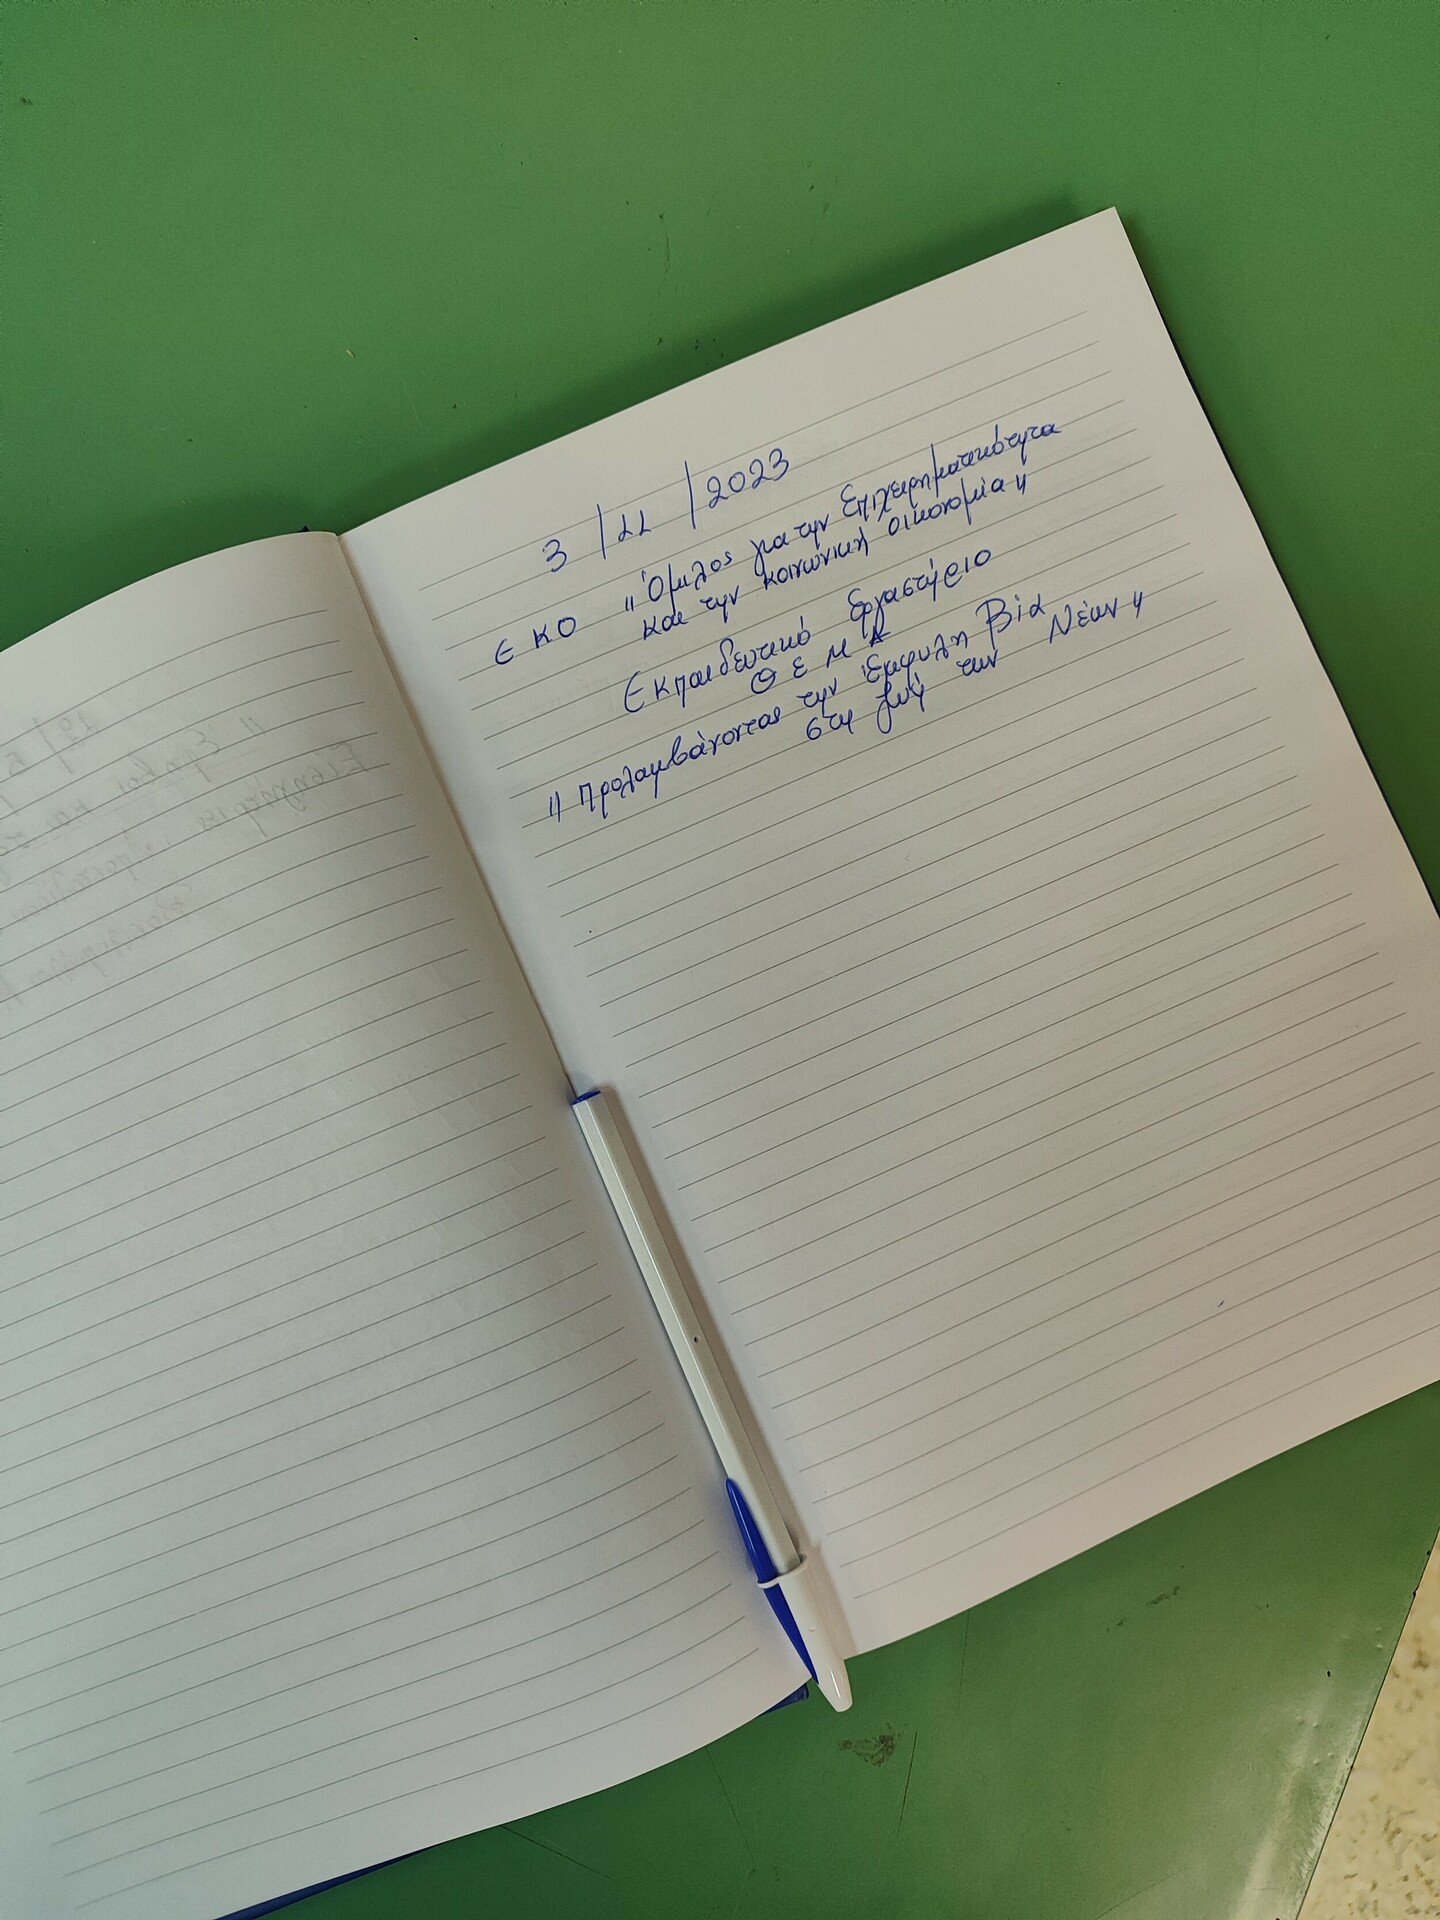 3 / 11 / 2023
Ε ΚΟ "Όμιλος για την Επιχειρηματικότητα
και την κοινωνική οικονομία"
Εκπαιδευτικό Εργαστήριο
Θ Ε Μ Α
"Προλαμβάνοντας την έμφυλη Βία
στη ζωή των Νέων"